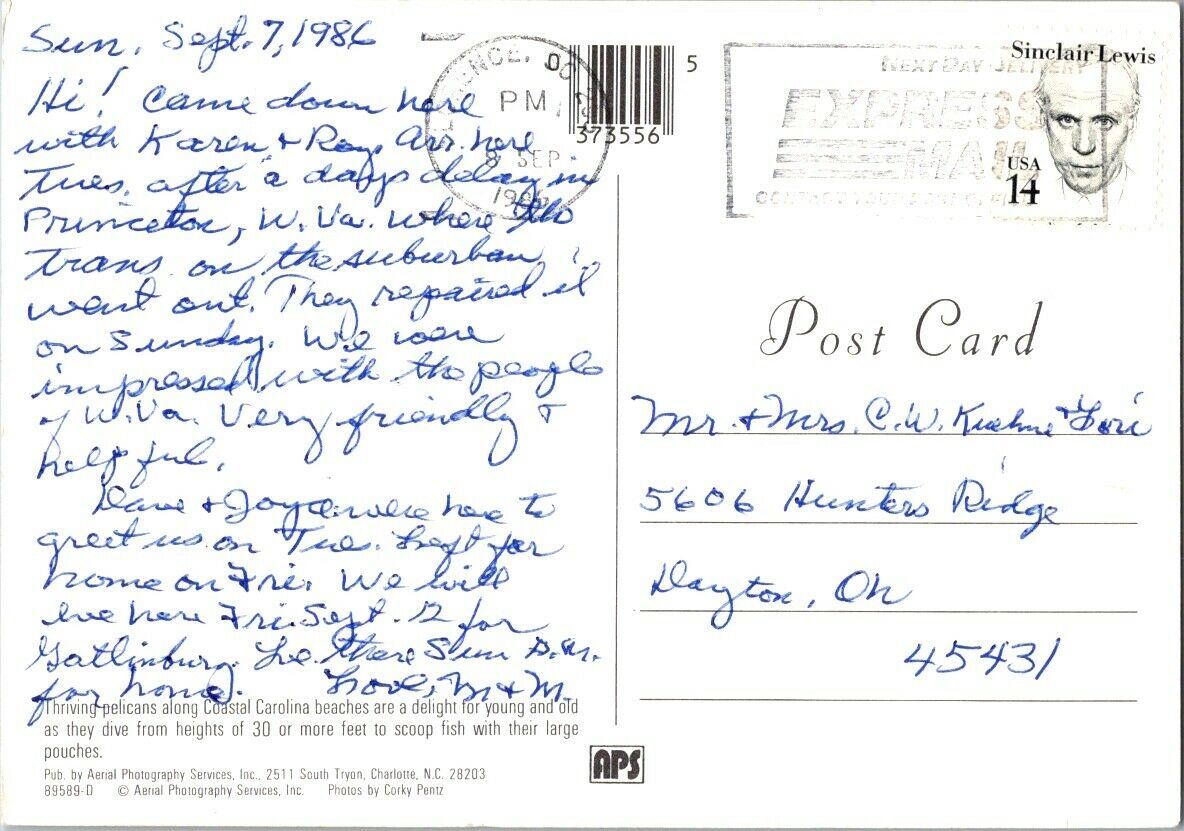 Sun. Sept. 7, 1986
Hi! Came down here
with Karen & Ray. Arr. here
Tues. after a days delay in
Princeton, W. Va. where the
trans. on the suburban
went out. They repaired it
on Sunday. We were
impressed with the people
of W. Va. Very friendly &
helpful.
Dave & Joyce were here to
greet us on Tues. Left for
home on Fri. We will
lve here Fri. Sept. 12 for
Gatlinburg. Lve there Sun A.M.
for home. Love, M & M.
Thriving pelicans along Coastal Carolina beaches are a delight for young and old
as they dive from heights of 30 or more feet to scoop fish with their large
pouches.
Pub. by Aerial Photography Services, Inc., 2511 South Tryon, Charlotte, N.C. 28203
89589-D © Aerial Photography Services, Inc. Photos by Corky Pentz
APS
PM
8 SEP
1986
5
373556
NEXT DAY DELIVERY
EXPRESS
MAIL
Sinclair Lewis
USA
14
Post Card
Mr. & Mrs. C.W. Kuehne & Lori
5606 Hunters Ridge
Dayton, Oh
45431